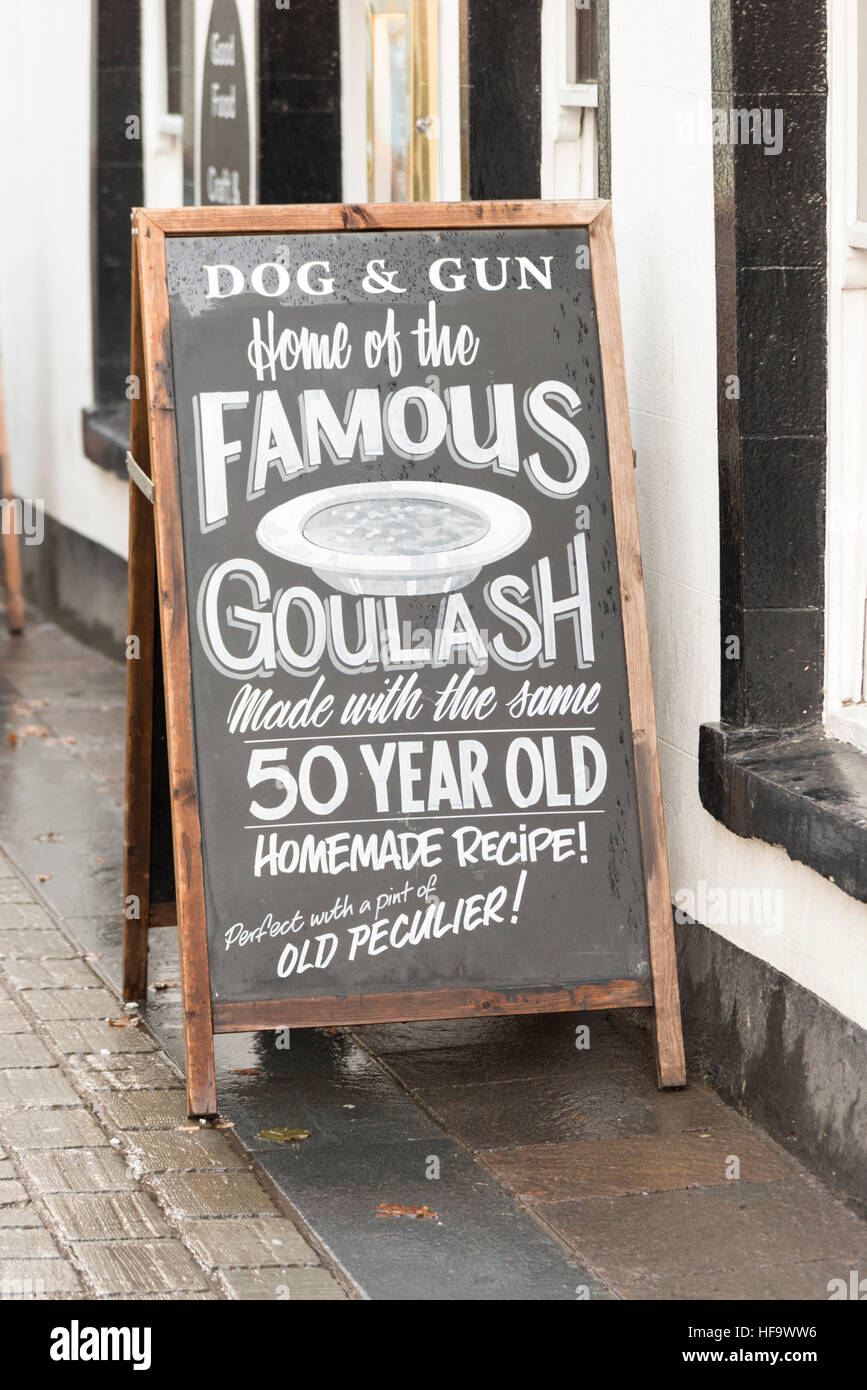 Good
Food
Craft &
DOG & GUN
Home of the
FAMOUS
GOULASH
Made with the same
50 YEAR OLD
HOMEMADE RECIPE!
Perfect with a pint of
OLD PECULIER!
alamy
alamy
Image ID: HF9WW6
www.alamy.com